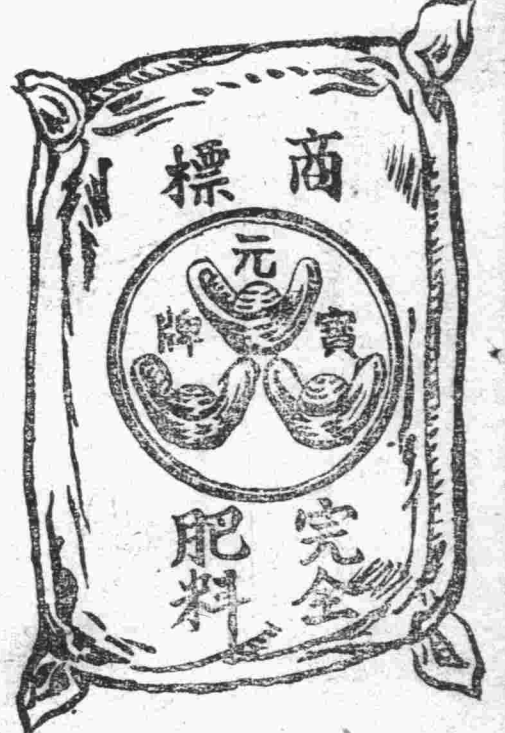 商標
元寶牌
完全
肥料